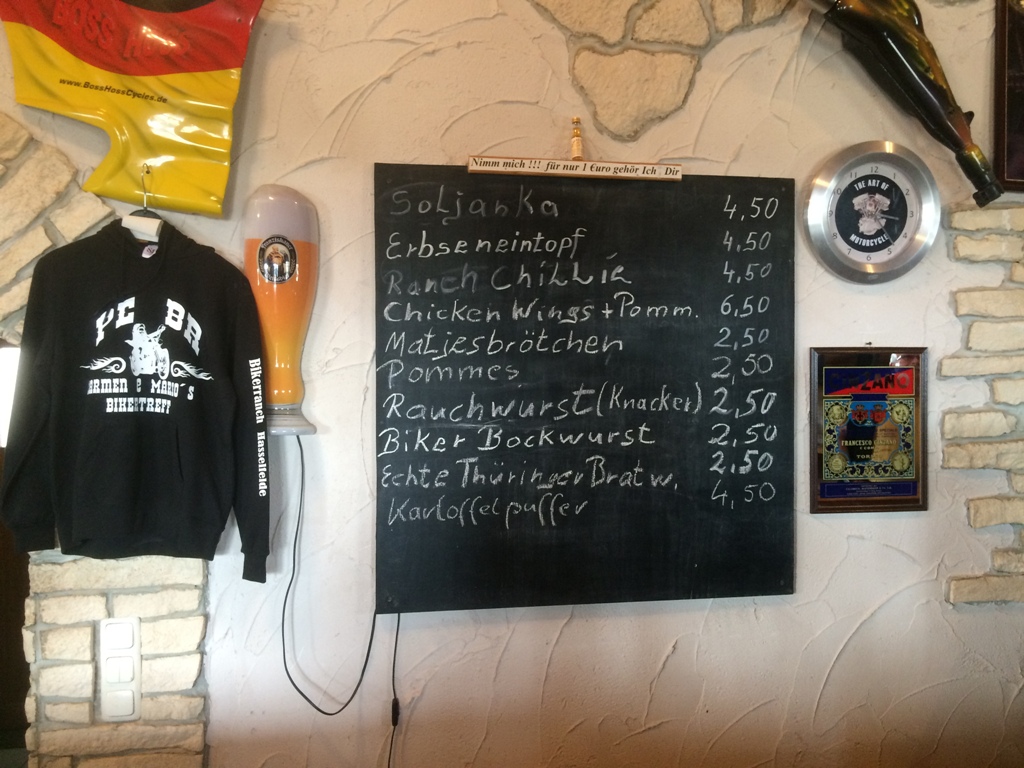 BOSS HOSS
www.BossHossCycles.de
Nimm mich !!! für nur 1 €uro gehör Ich Dir
Soljanka 4,50
Erbseneintopf 4,50
Ranch Chillie 4,50
Chicken Wings + Pomm. 6,50
Matjesbrötchen 2,50
Pommes 2,50
Rauchwurst (Knacker) 2,50
Biker Bockwurst 2,50
Echte Thüringer Bratw. 2,50
Kartoffelpuffer 4,50
BIKERTREFF
Bikerranch Hasselfelde
THE ART OF
MOTORCYCLE
12
6
FRANCESCO